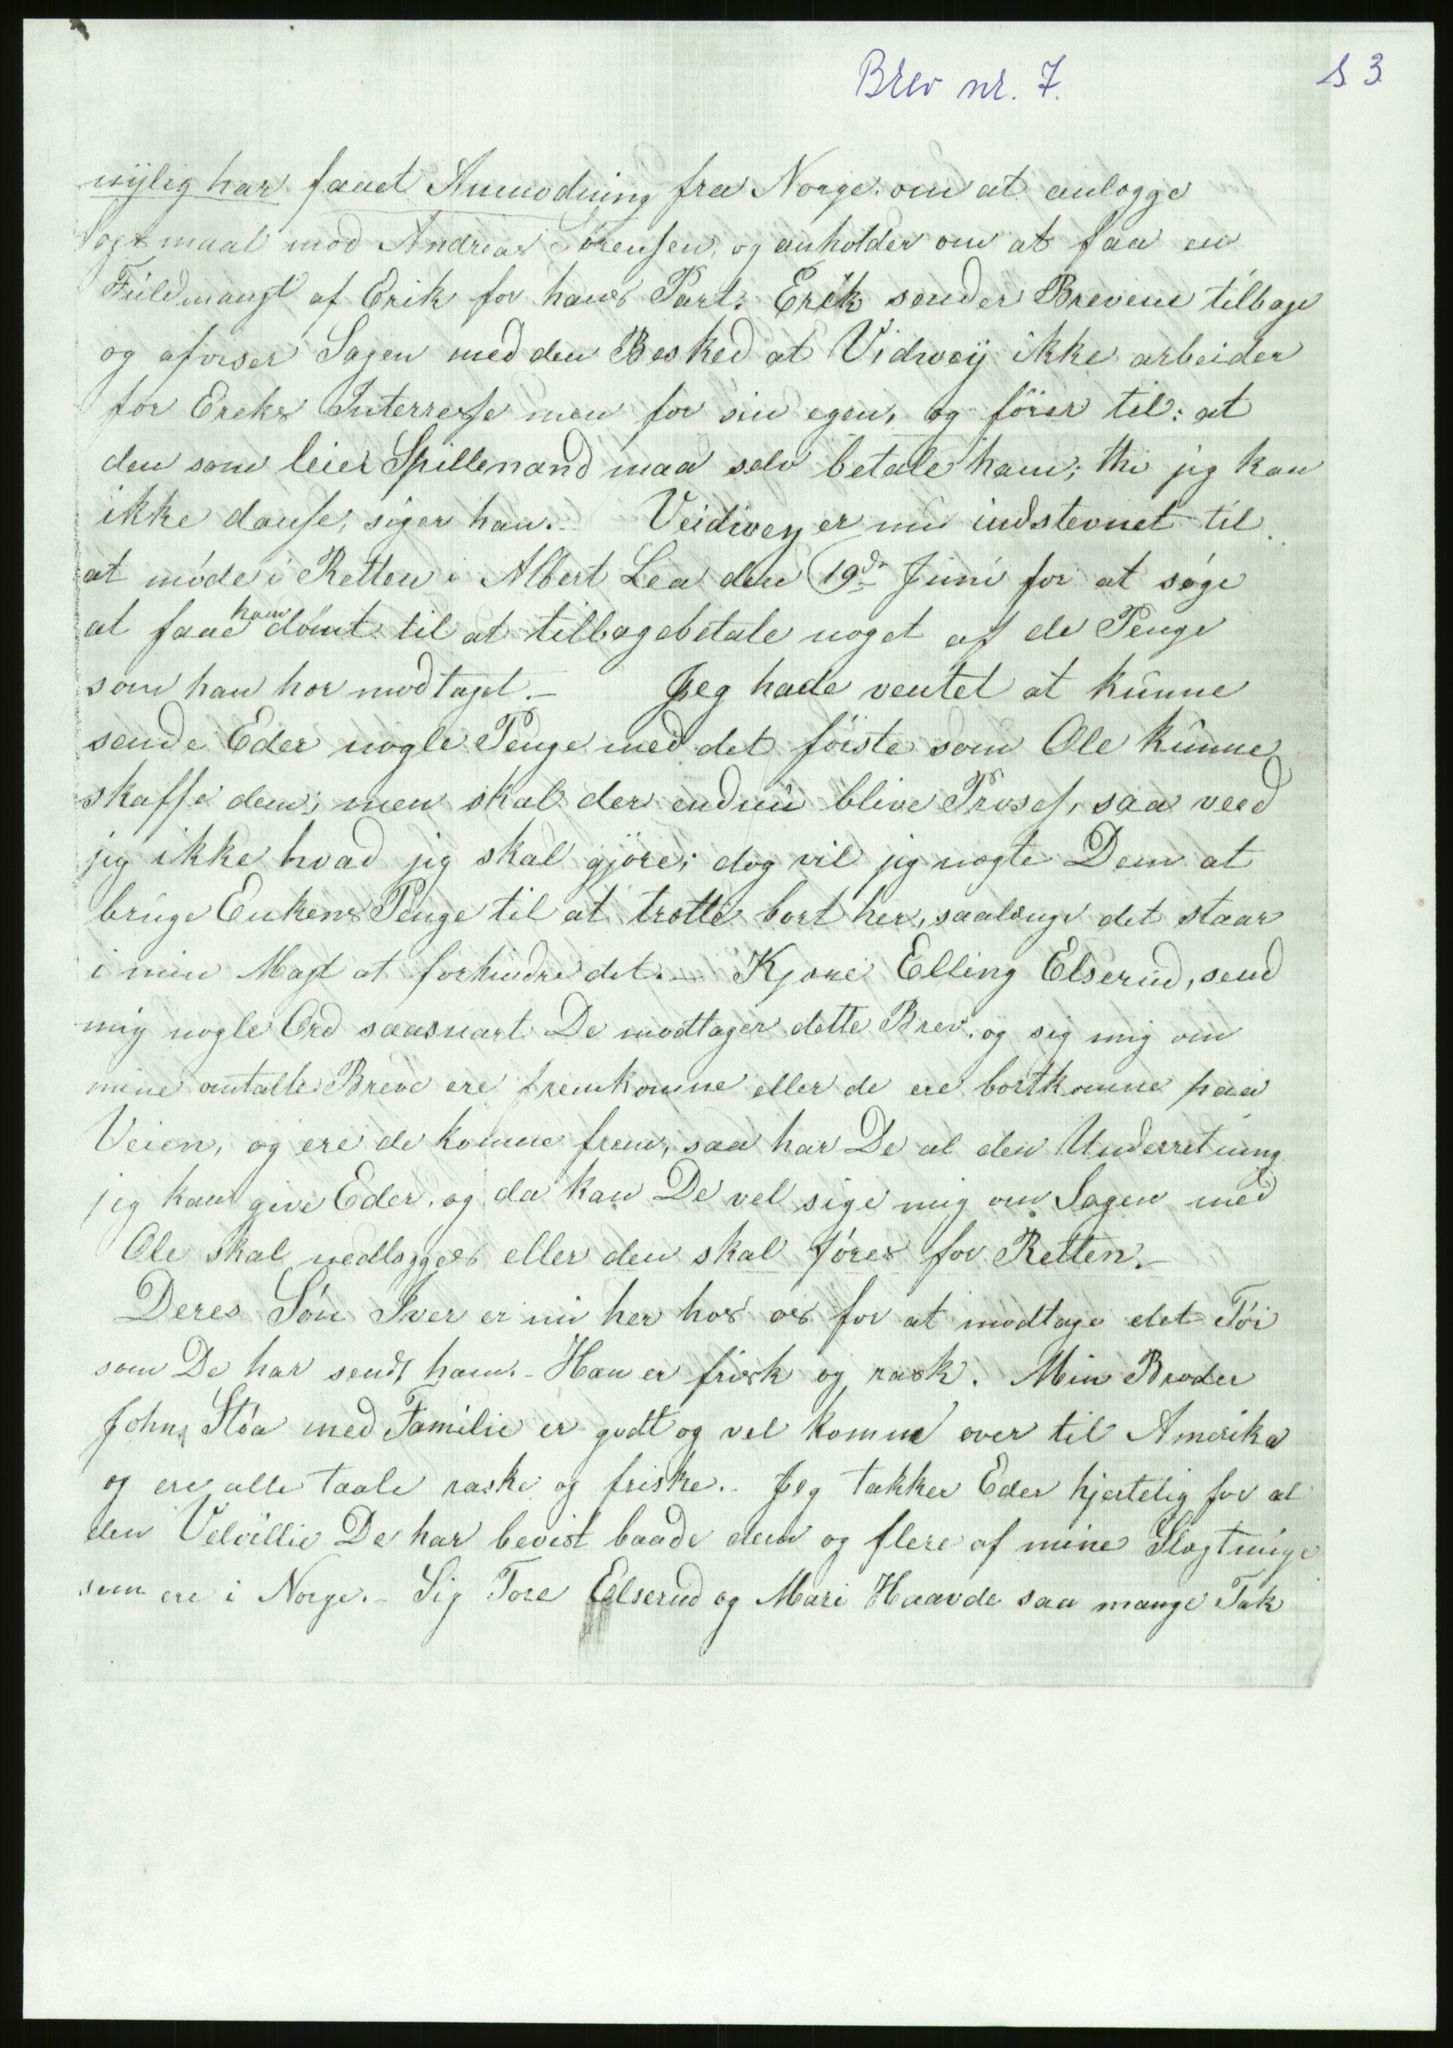 Brev nr. 7.
S 3
nÿlig har faaet Anmodning fra Norge om at anlægge
Søgsmaal mod Andreas Sørensen, og anholder om at faa en
Fuldmagt af Erik for hans Part. Erik sender Brevene tilbage
og afviser Sagen med den Besked at Vidvey ikke arbeider
for Ereks Interresse men for sin egen, og förer til: at
den som leier Spillemand maa selv betale ham; thi jeg kan
ikke danse, siger han. - Veidivey er nu indstevnet til
at möde i Retten i Albert Lea den 19de Juni for at søge
at faae ham dömt til at tilbagebetale noget af de Penge
som han har modtaget. - Jeg hade ventet at kunne
sende Eder nogle Penge med det förste som Ole kunne
skaffe dem; men skal der endnu blive Prosess, saa veed
jeg ikke hvad jeg skal gjöre; dog vil jeg nægte Dem at
bruge Enkens Penge til at trætte bort her, saalænge det staar
i min Magt at forhindre det. - Kjære Elling Elserud, send
mig nogle Ord saasnart De modtager dette Brev, og sig mig om
mine omtalte Breve ere fremkomne eller de ere bortkomne paa
Veien, og ere de komne frem, saa har De al den Underretning
jeg kan give Eder, og da kan De vel sige mig om Sagen med
Ole skal nedlægges eller den skal föres for Retten. -
Deres Sön Iver er nu her hos os for at modtage det Töi
som De har sendt ham. - Han er frisk og rask. Min Broder
John Stöa med Familie er godt og vel komne over til Amerika
og ere alle taale raske og friske. - Jeg takker Eder hjertelig for al
den Velvillie De har bevist baade dem og flere af mine Slægtninge
som ere i Norge. - Sig Tore Elserud og Mari Haavde saa mange Tak